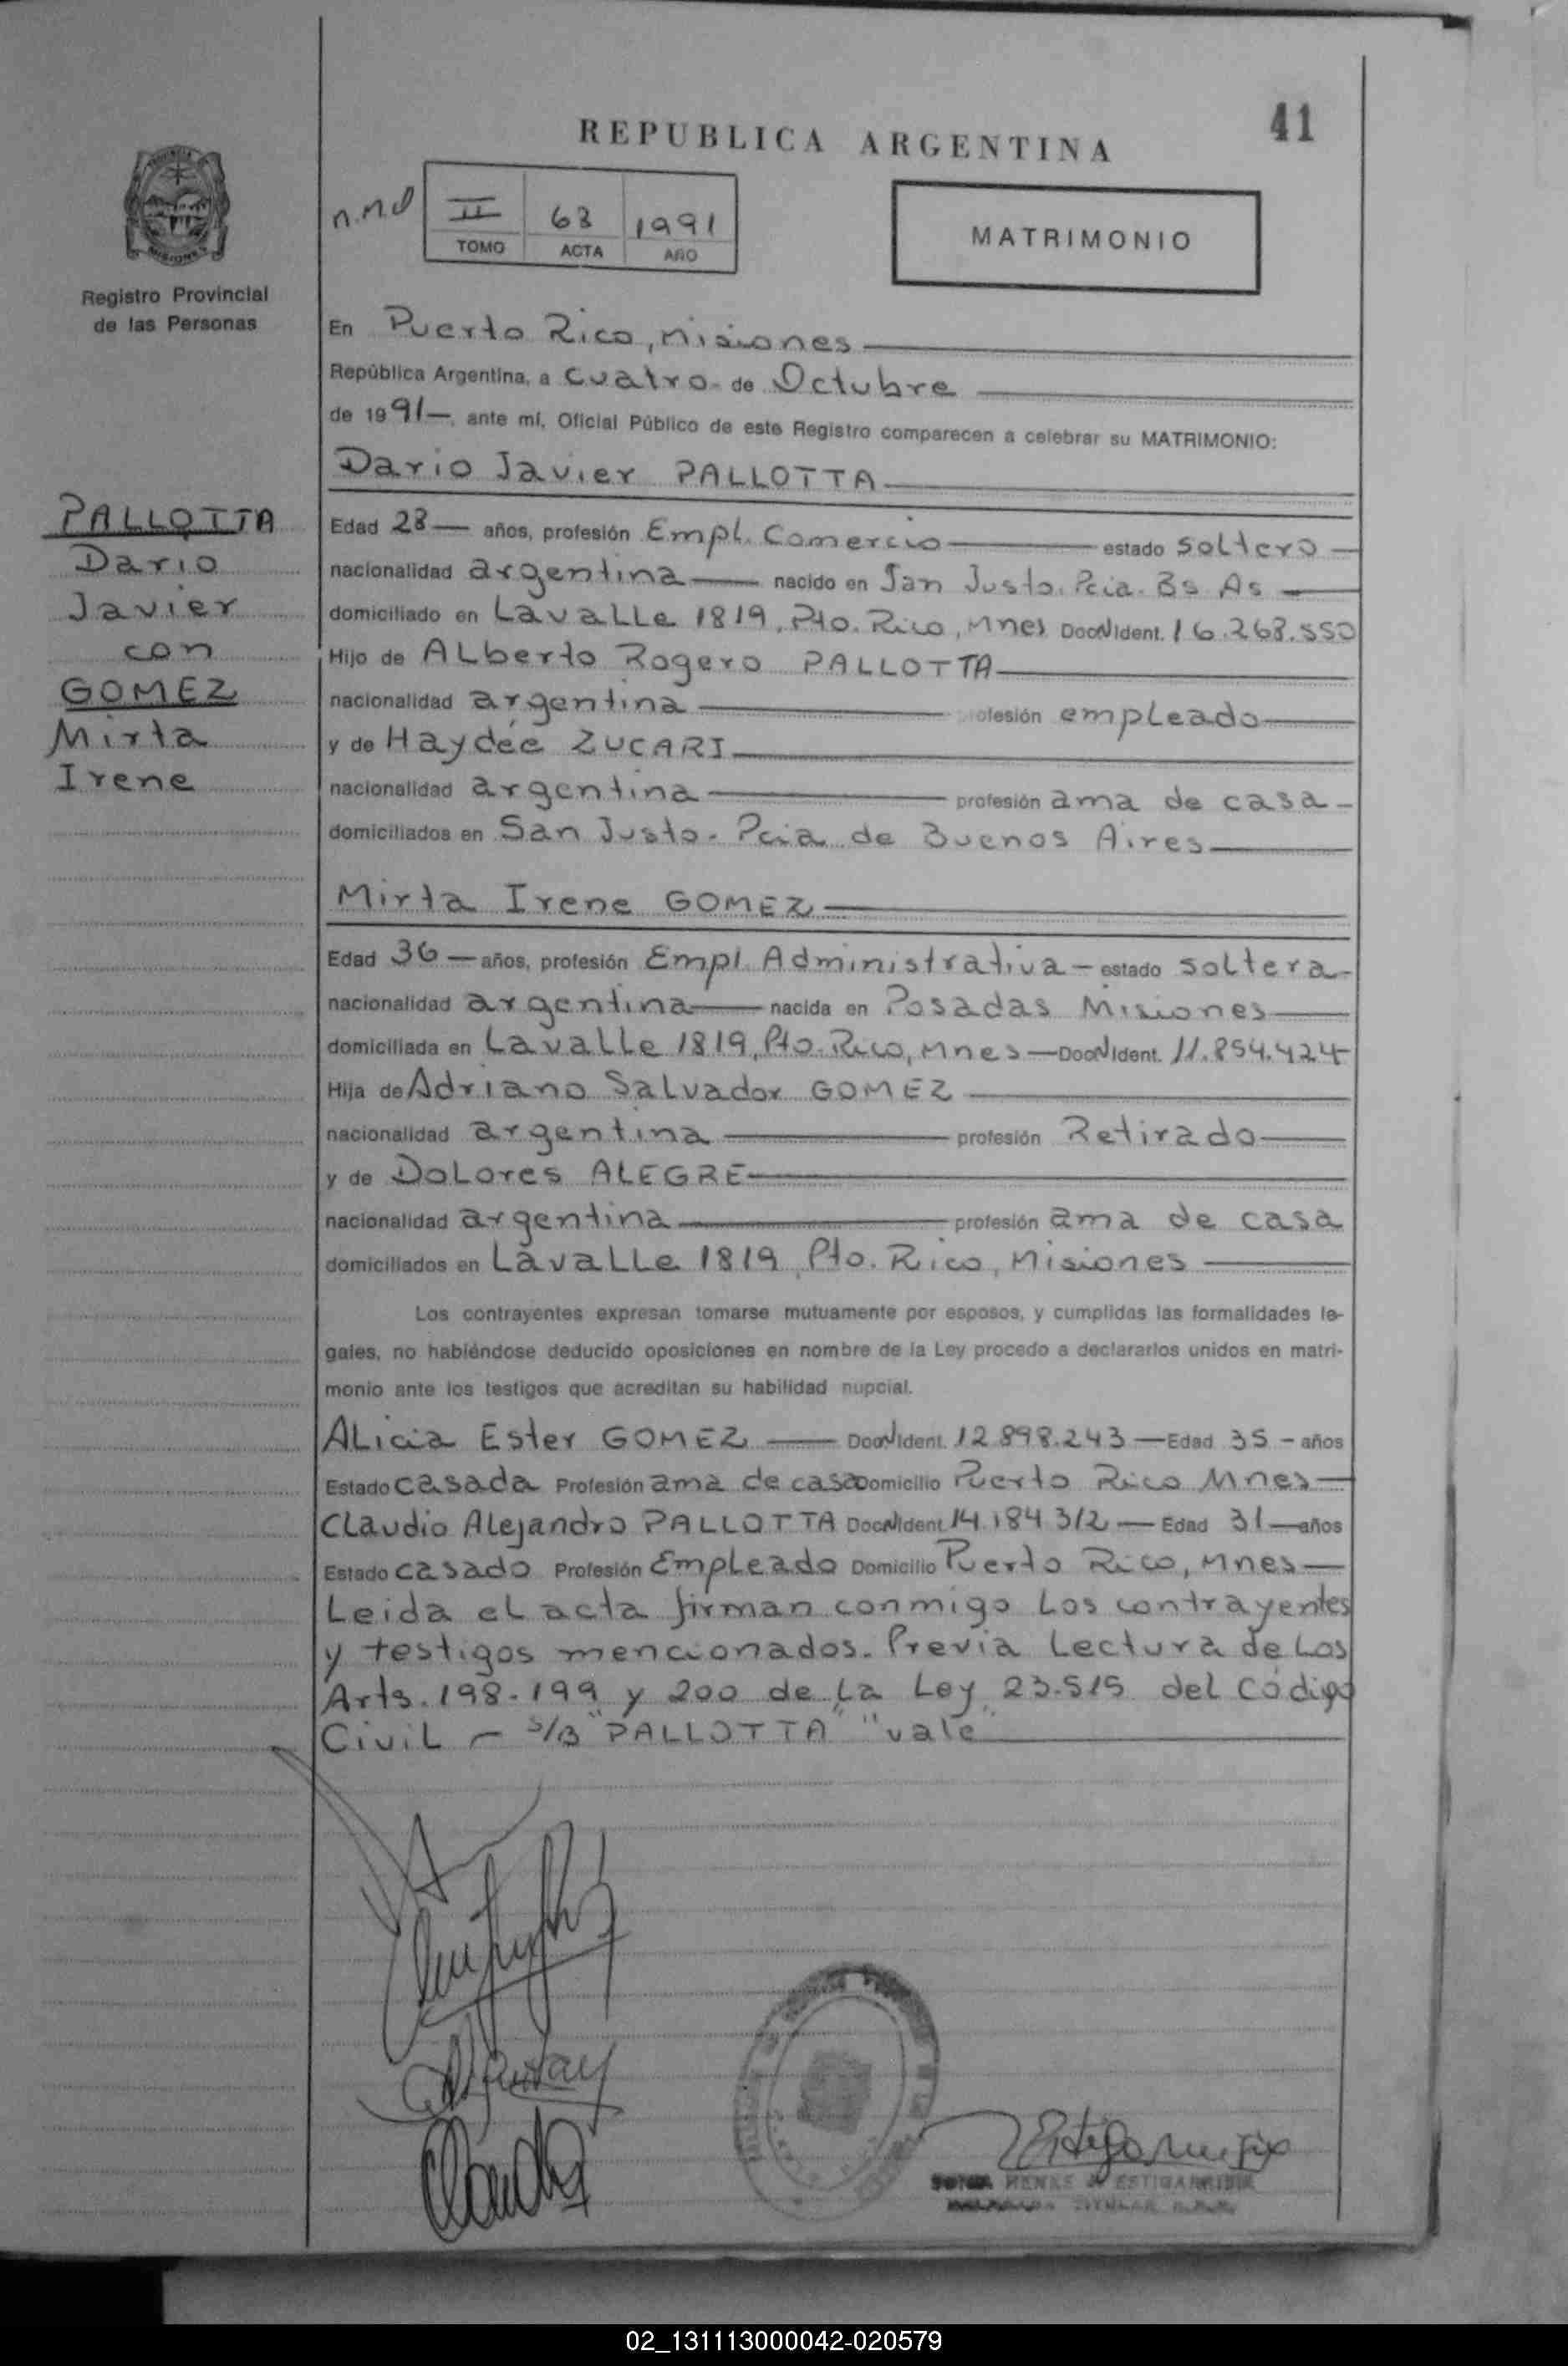 41
REPUBLICA ARGENTINA
II 63 1991
TOMO ACTA AÑO
MATRIMONIO
MISIONES
Registro Provincial
de las Personas
PALLOTTA
Dario
Javier
con
GOMEZ
Mirta
Irene
En Puerto Rico, Misiones
República Argentina, a cuatro- de Octubre
de 1991—, ante mí, Oficial Público de este Registro comparecen a celebrar su MATRIMONIO:
Dario Javier PALLOTTA
Edad 28— años, profesión Empl. Comercio — estado soltero—
nacionalidad argentina — nacido en San Justo. Pcia. Bs As —
domiciliado en Lavalle 1819, Pto. Rico, Mnes Doc N Ident. 16.268.550
Hijo de Alberto Rogero PALLOTTA
nacionalidad argentina — profesión empleado—
y de Haydée ZUCARI
nacionalidad argentina — profesión ama de casa-
domiciliados en San Justo- Pcia de Buenos Aires
Mirta Irene GOMEZ
Edad 36 — años, profesión Empl Administrativa — estado soltera-
nacionalidad argentina — nacida en Posadas Misiones
domiciliada en Lavalle 1819, Pto. Rico, Mnes — Doc N Ident. 11.854.424
Hija de Adriano Salvador GOMEZ
nacionalidad argentina — profesión Retirado
y de Dolores ALEGRE
nacionalidad argentina — profesión ama de casa
domiciliados en Lavalle 1819, Pto. Rico, Misiones
Los contrayentes expresan tomarse mutuamente por esposos, y cumplidas las formalidades le-
gales, no habiéndose deducido oposiciones en nombre de la Ley procedo a declararlos unidos en matri-
monio ante los testigos que acreditan su habilidad nupcial.
Alicia Ester GOMEZ — Doc N Ident. 12.898.243 — Edad 35 - años
Estado casada Profesión ama de casa Domicilio Puerto Rico Mnes—
Claudio Alejandro PALLOTTA Doc N Ident 14.184.312 — Edad 31— años
Estado casado Profesión Empleado Domicilio Puerto Rico, Mnes—
Leida el acta firman conmigo los contrayentes
y testigos mencionados. Previa Lectura de los
Arts. 198-199 y 200 de la Ley 23.515 del Código
Civil — S/B "PALLOTTA" "vale"
HENKE ESTIGARRIBIA
TITULAR
02_131113000042-020579